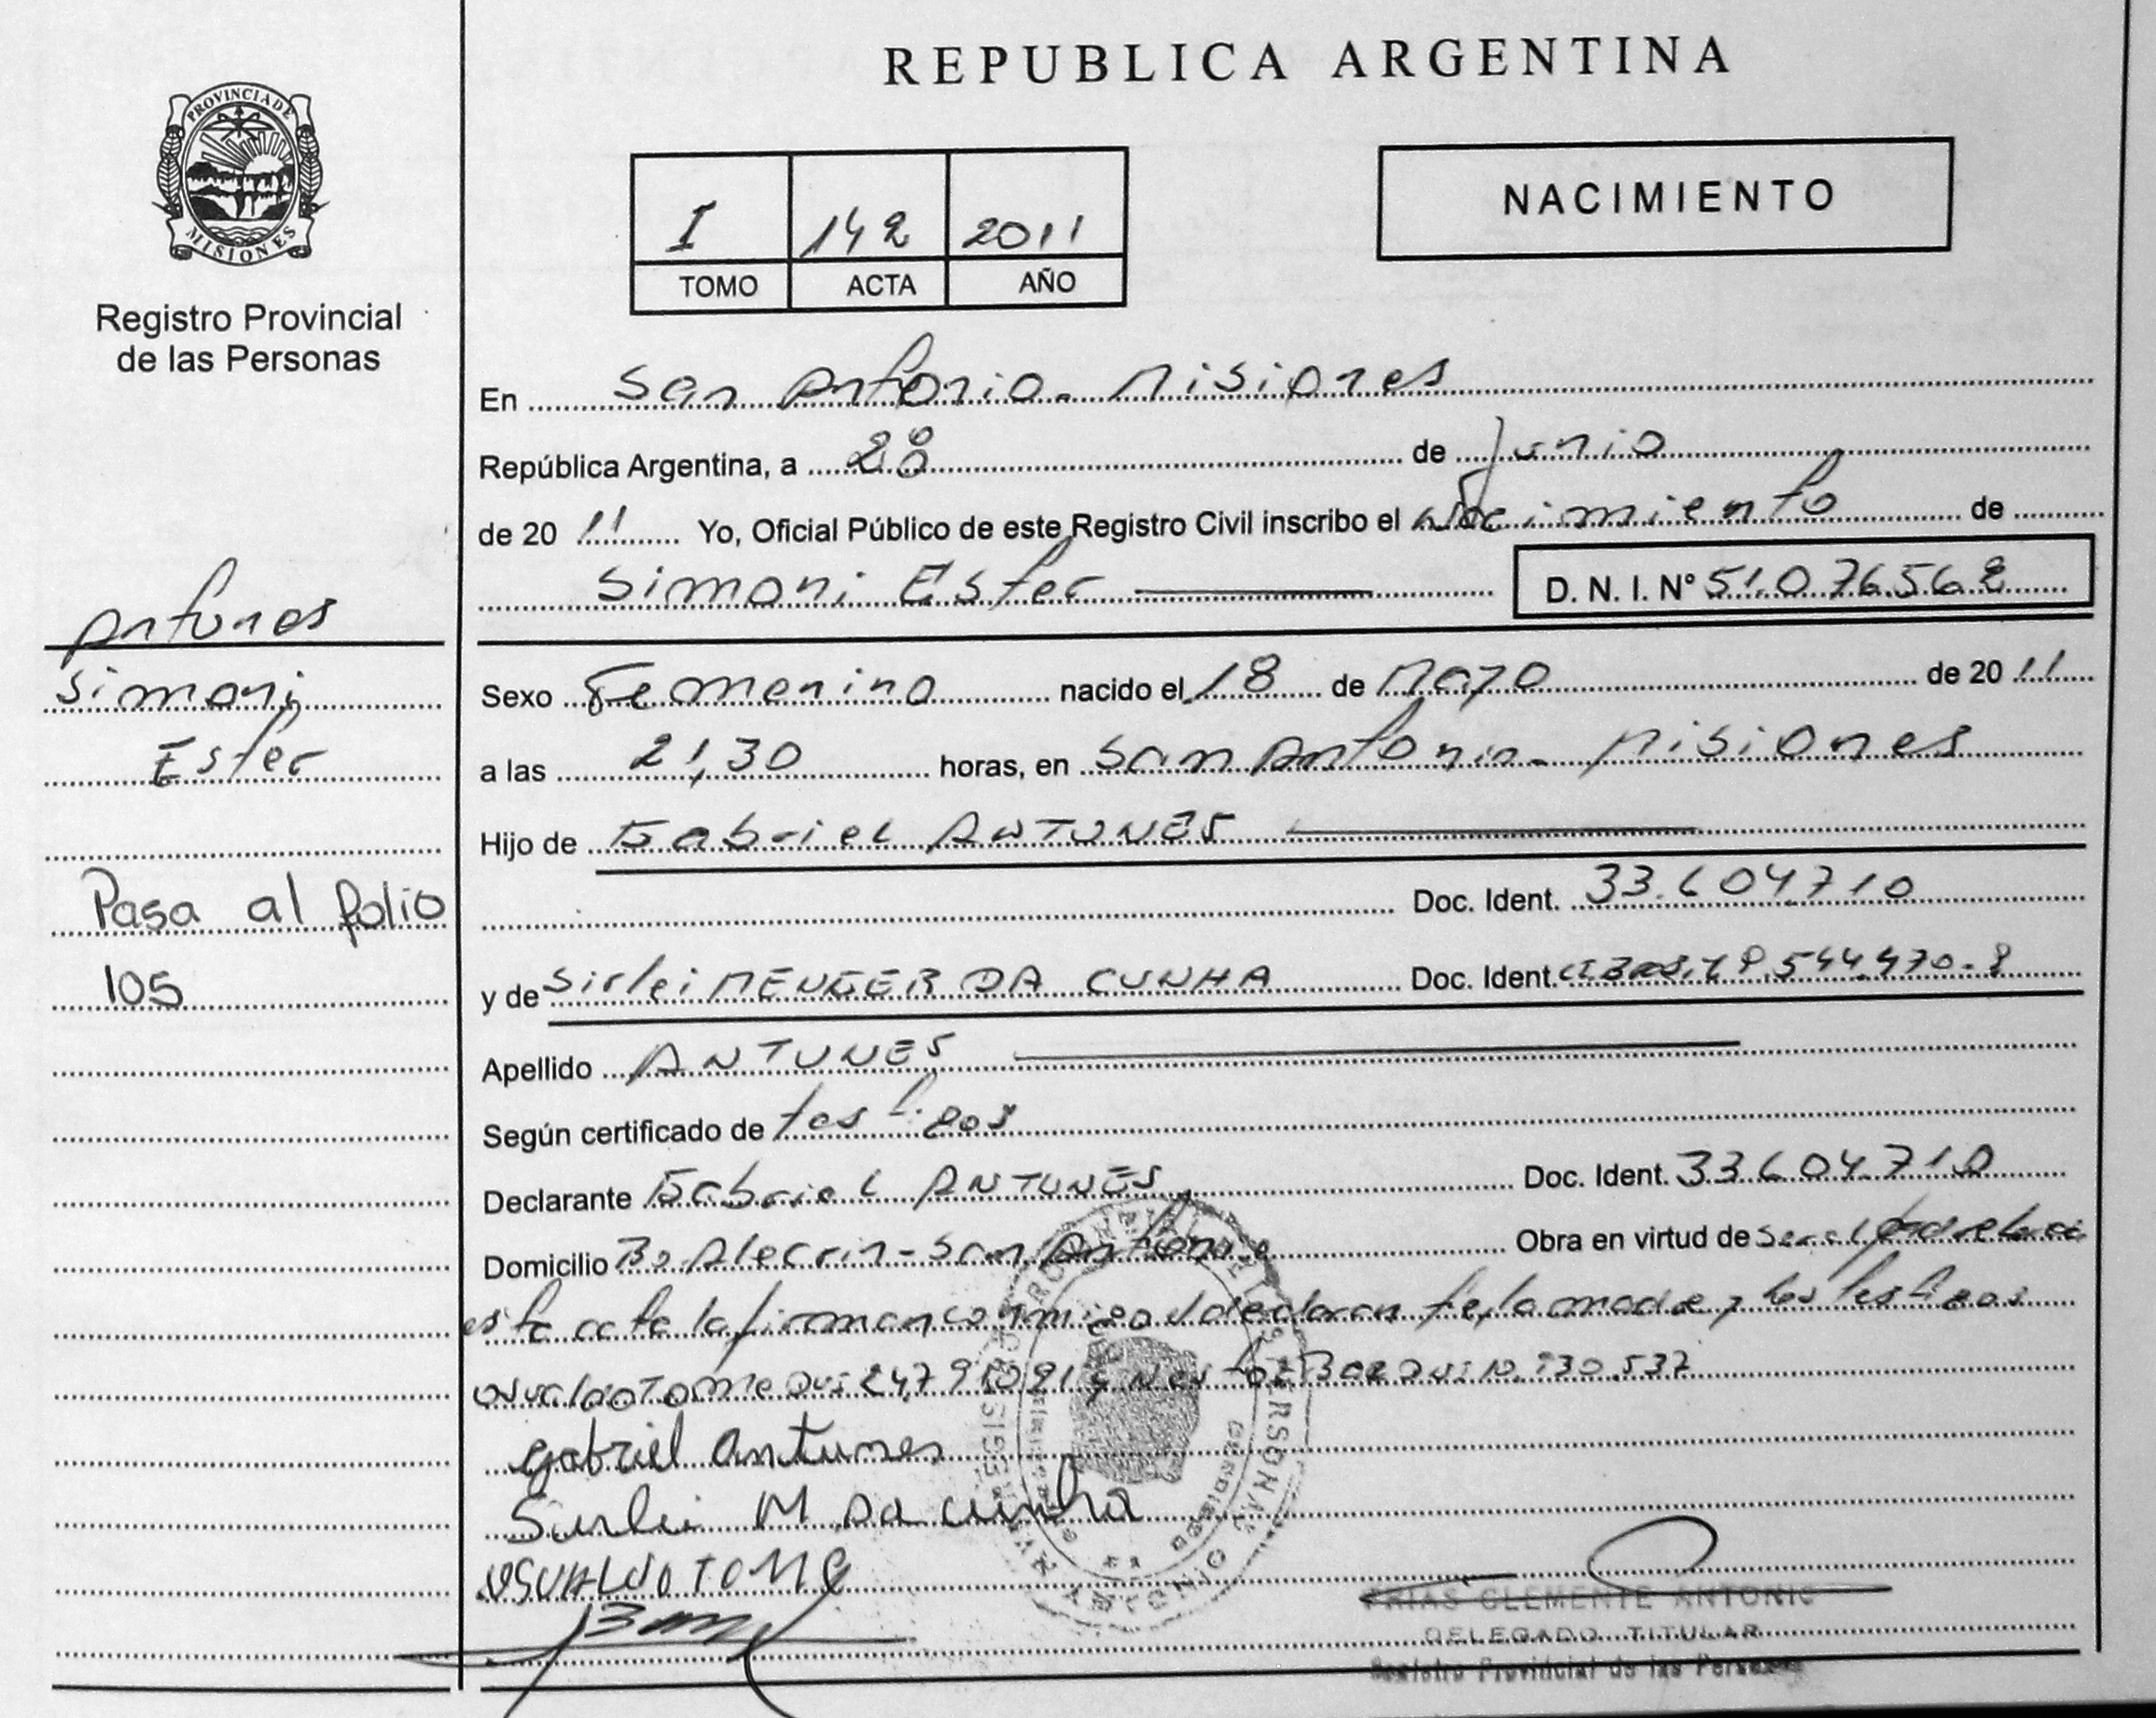 REPUBLICA ARGENTINA
PROVINCIA DE
MISIONES
Registro Provincial
de las Personas
I 142 2011
TOMO ACTA AÑO
NACIMIENTO
En San Antonio - Misiones
República Argentina, a 28 de Junio
de 20 11 Yo, Oficial Público de este Registro Civil inscribo el Nacimiento de
Simoni Ester D. N. I. N° 51.076.562
Antunes
Simoni
Ester
Pasa al folio
105
Sexo Femenino nacido el 18 de Mayo de 20 11
a las 21,30 horas, en San Antonio - Misiones
Hijo de Gabriel ANTUNES
Doc. Ident. 33.604.710
y de Sirlei MENGER DA CUNHA Doc. Ident. 544.470-8
Apellido ANTUNES
Según certificado de testigos
Declarante Gabriel ANTUNES Doc. Ident. 33.604.710
Domicilio Bo Alecrin - San Antonio Obra en virtud de ser el padre
esta acta la firman conmigo el declarante, la madre y los testigos
Osvaldo Tome 10.130.537
gabriel Antunes
Surlei M Da cunha
OSVALDO TOME
FRIAS CLEMENTE ANTONIO
DELEGADO TITULAR
Registro Provincial de las Personas